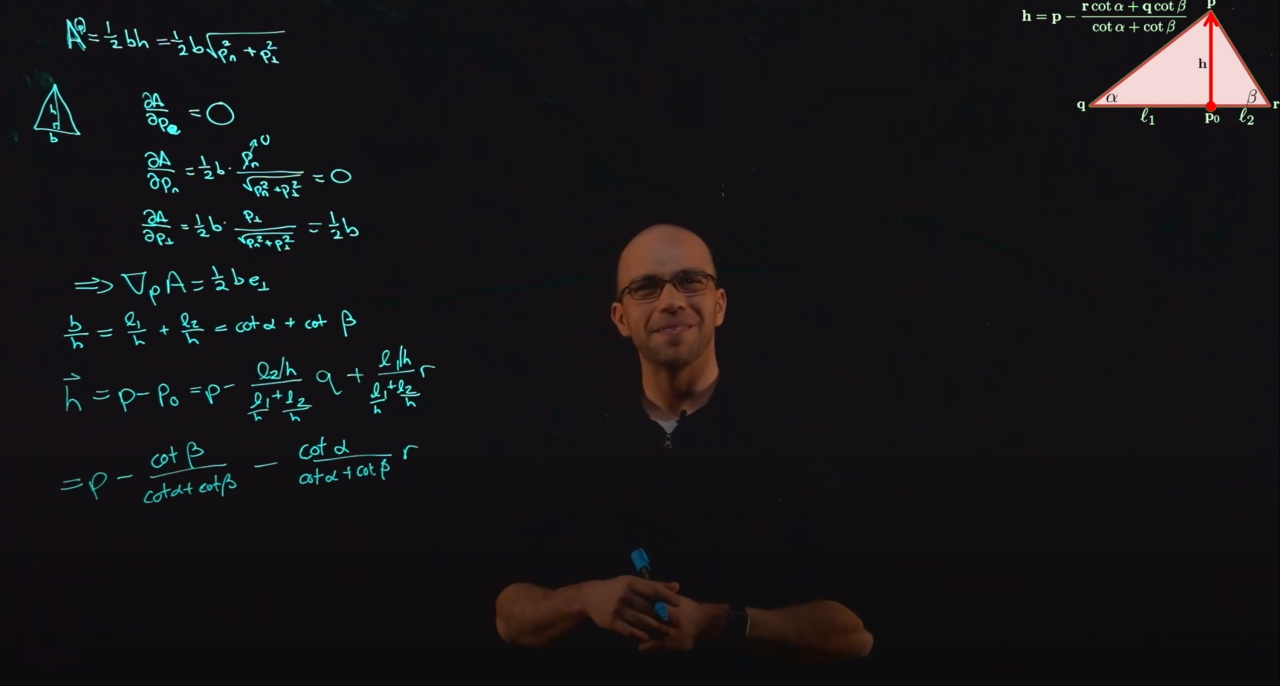 A(p) = 1/2 bh = 1/2 b √(pₙ² + p⊥²)
h
b
∂A/∂pₑ = 0
∂A/∂pₙ = 1/2 b · pₙ↗0 / √(pₙ² + p⊥²) = 0
∂A/∂p⊥ = 1/2 b · p⊥ / √(pₙ² + p⊥²) = 1/2 b
⇒ ∇ₚA = 1/2 b e⊥
b/h = ℓ₁/h + ℓ₂/h = cot α + cot β
h⃗ = p − p₀ = p − (ℓ₂/h)/(ℓ₁/h + ℓ₂/h) q + (ℓ₁/h)/(ℓ₁/h + ℓ₂/h) r
= p − cot β/(cot α + cot β) − cot α/(cot α + cot β) r
h = p − (r cot α + q cot β)/(cot α + cot β)
p
h
q
α
β
r
ℓ₁
p₀
ℓ₂